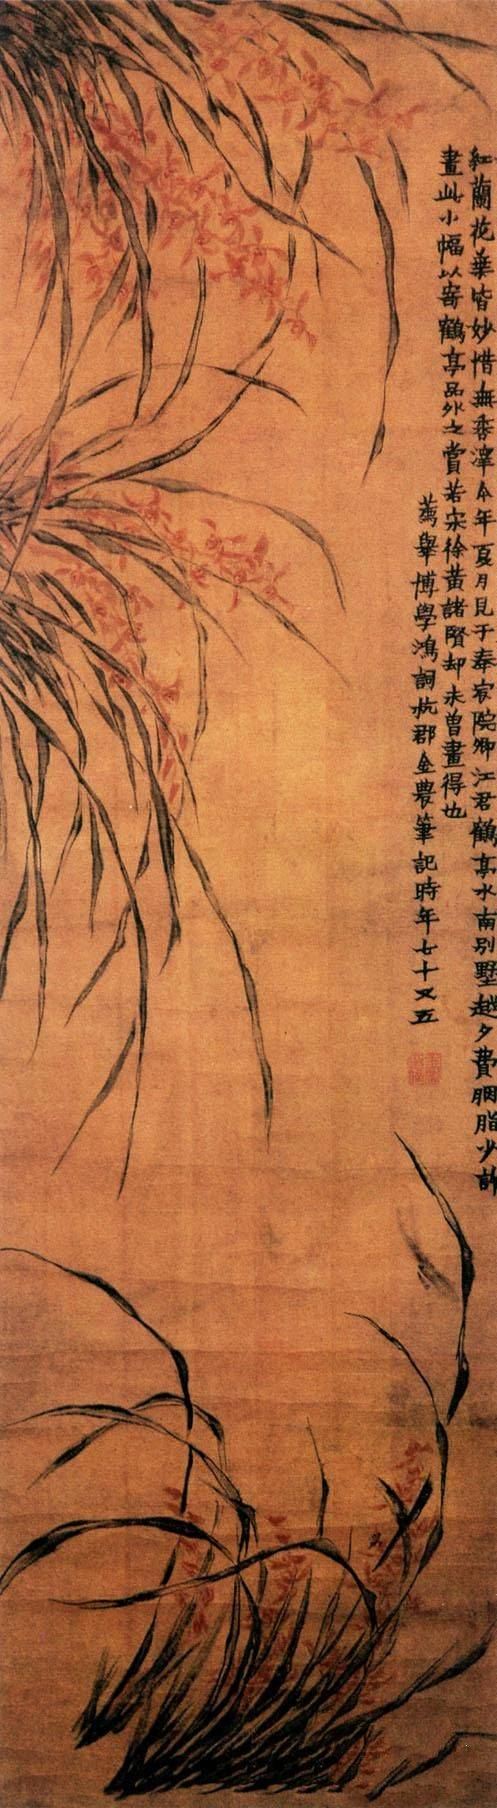 紅蘭花葉皆妙惜無香澤今年夏月見于奉宸院卿江君鶴亭水南別墅越夕費胭脂少許
畫此小幅以寄鶴亭品外之賞若宋徐黃諸賢却未曾畫得也
薦舉博學鴻詞杭郡金農筆記時年七十又五